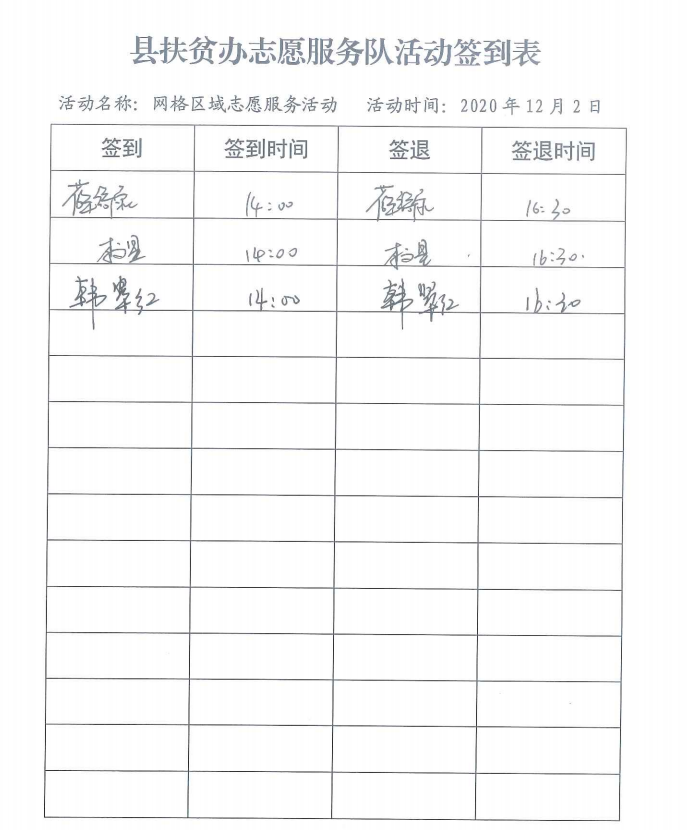 县扶贫办志愿服务队活动签到表
活动名称：网格区域志愿服务活动 活动时间：2020年12月2日
签到 签到时间 签退 签退时间
14:00 16:30
14:00 16:30
韩翠红 14:00 韩翠红 16:30